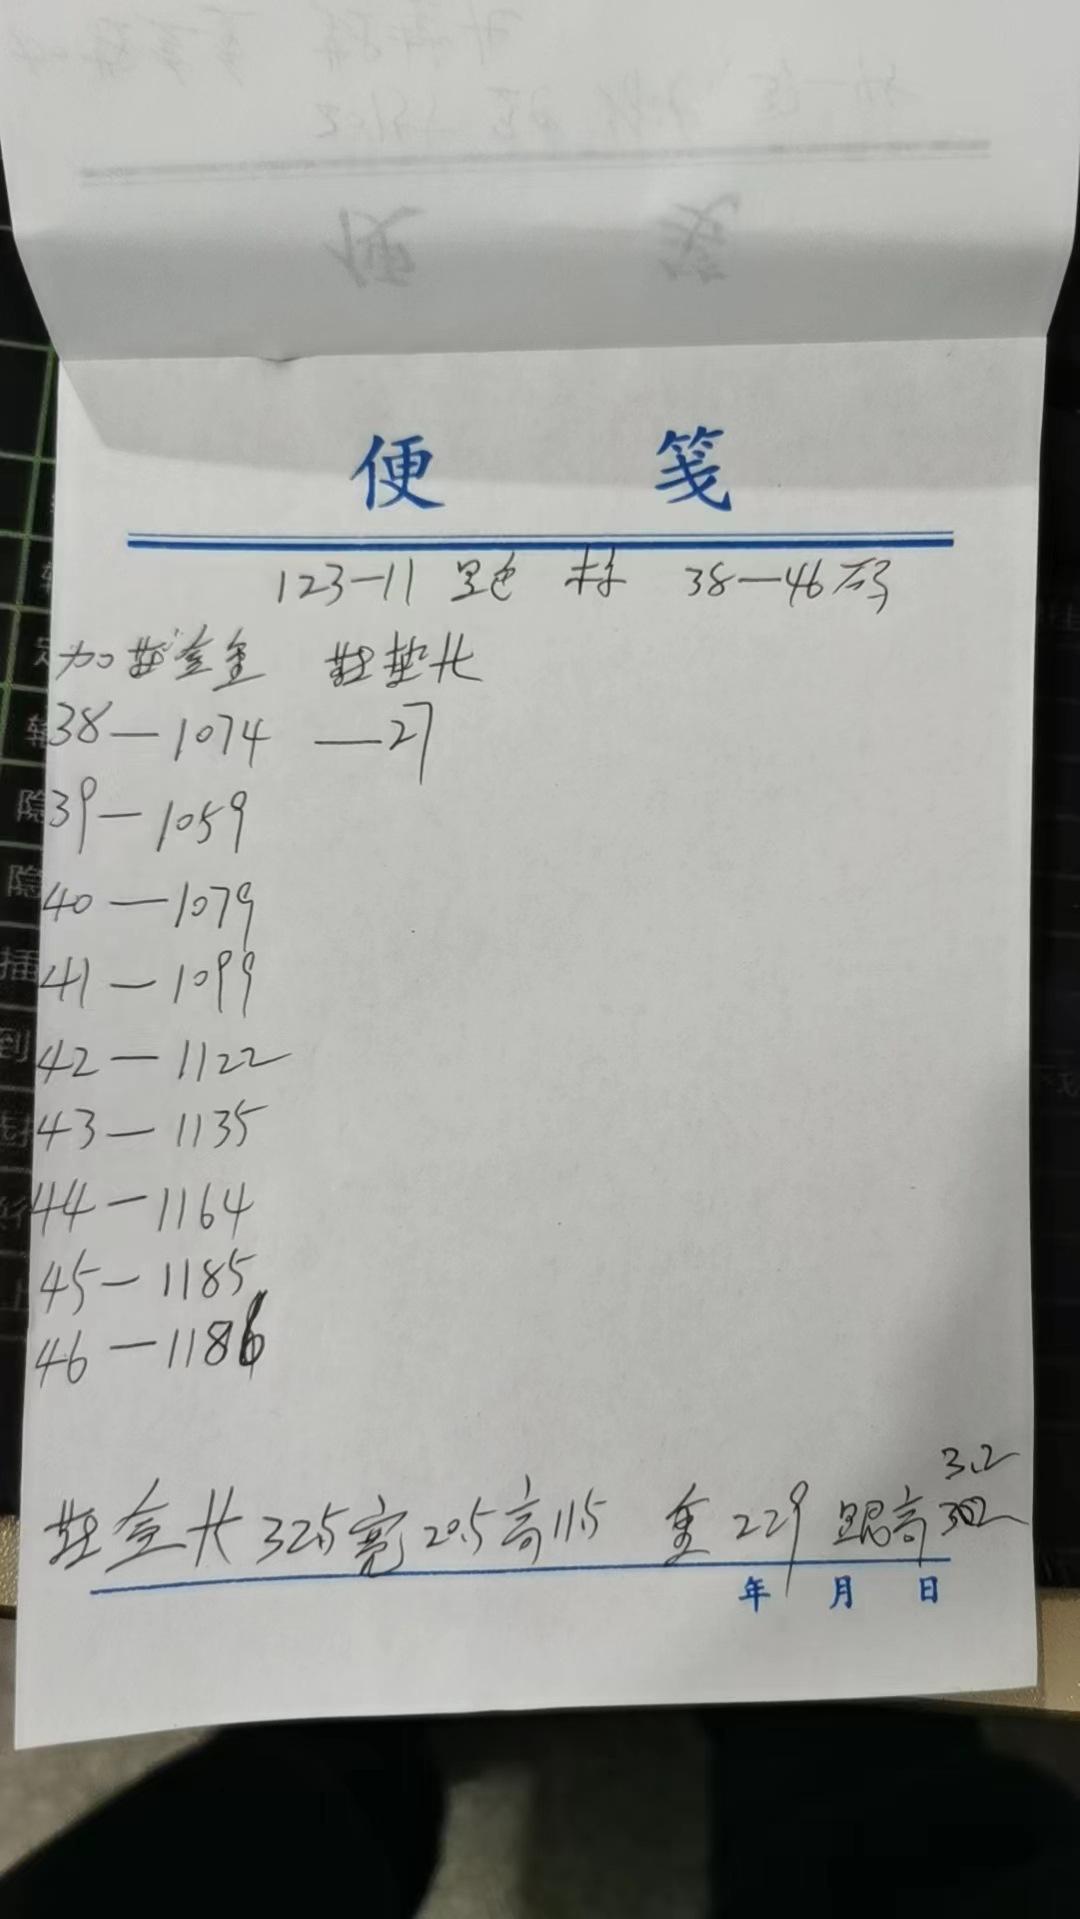 便 笺
123-11 黑色 标 38-46码
加鞋盒重 鞋垫长
38-1074 -27
39-1059
40-1079
41-1099
42-1122
43-1135
44-1164
45-1185
46-1186
3.2
鞋盒长32.5宽20.5高11.5 重229 跟高
年 月 日